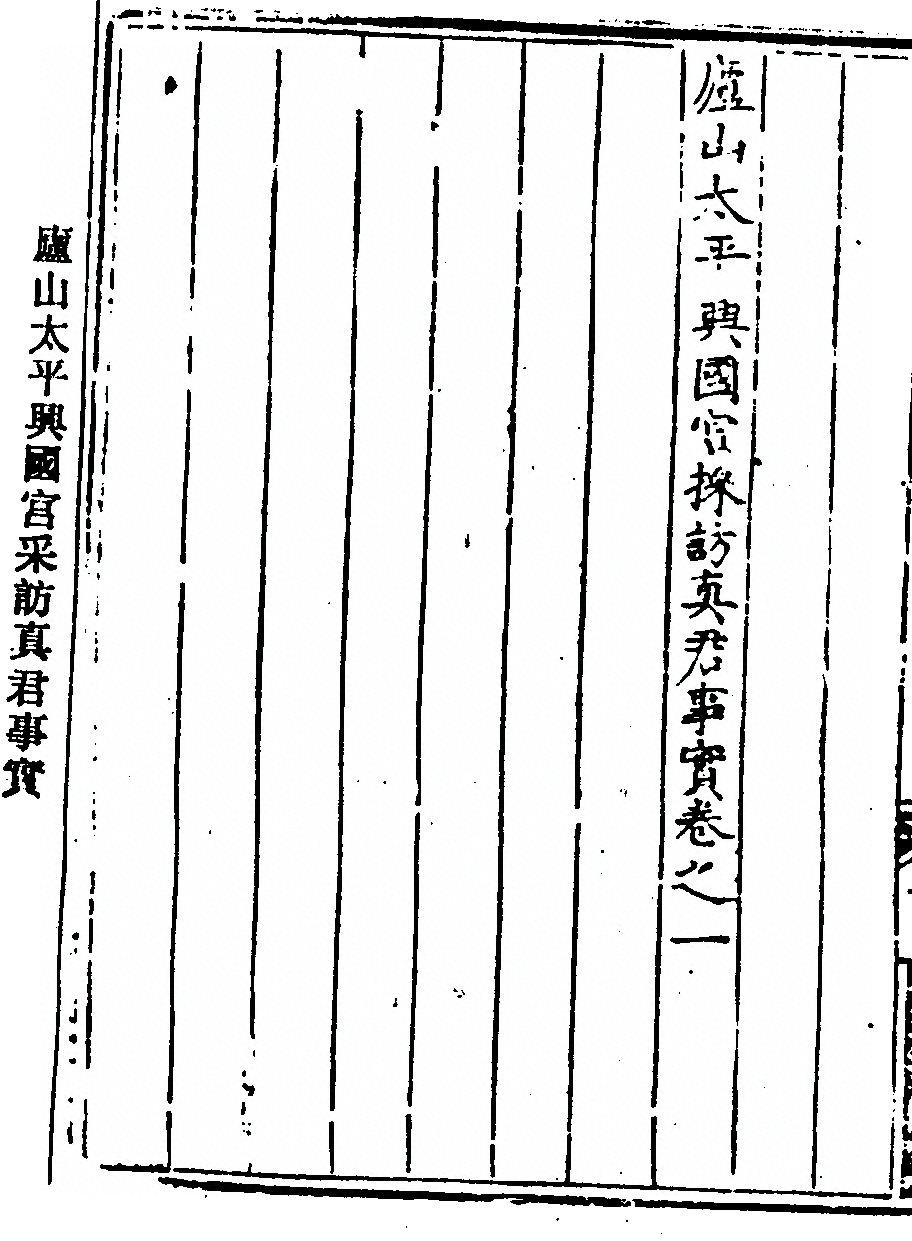 廬山太平興國宮採訪真君事實卷之一
廬山太平興國宮采訪真君事實